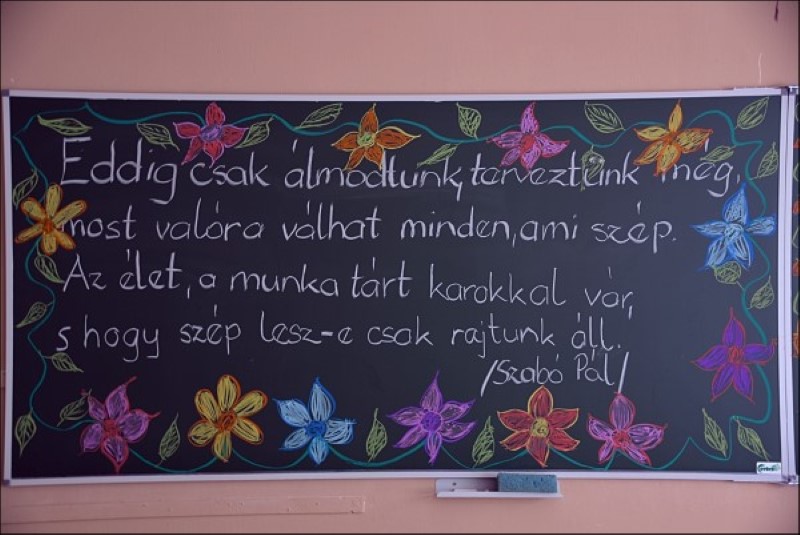 Eddig csak álmodtunk, terveztünk még,
most valóra válhat minden, ami szép.
Az élet, a munka tárt karokkal vár,
s hogy szép lesz-e csak rajtunk áll.
/Szabó Pál/